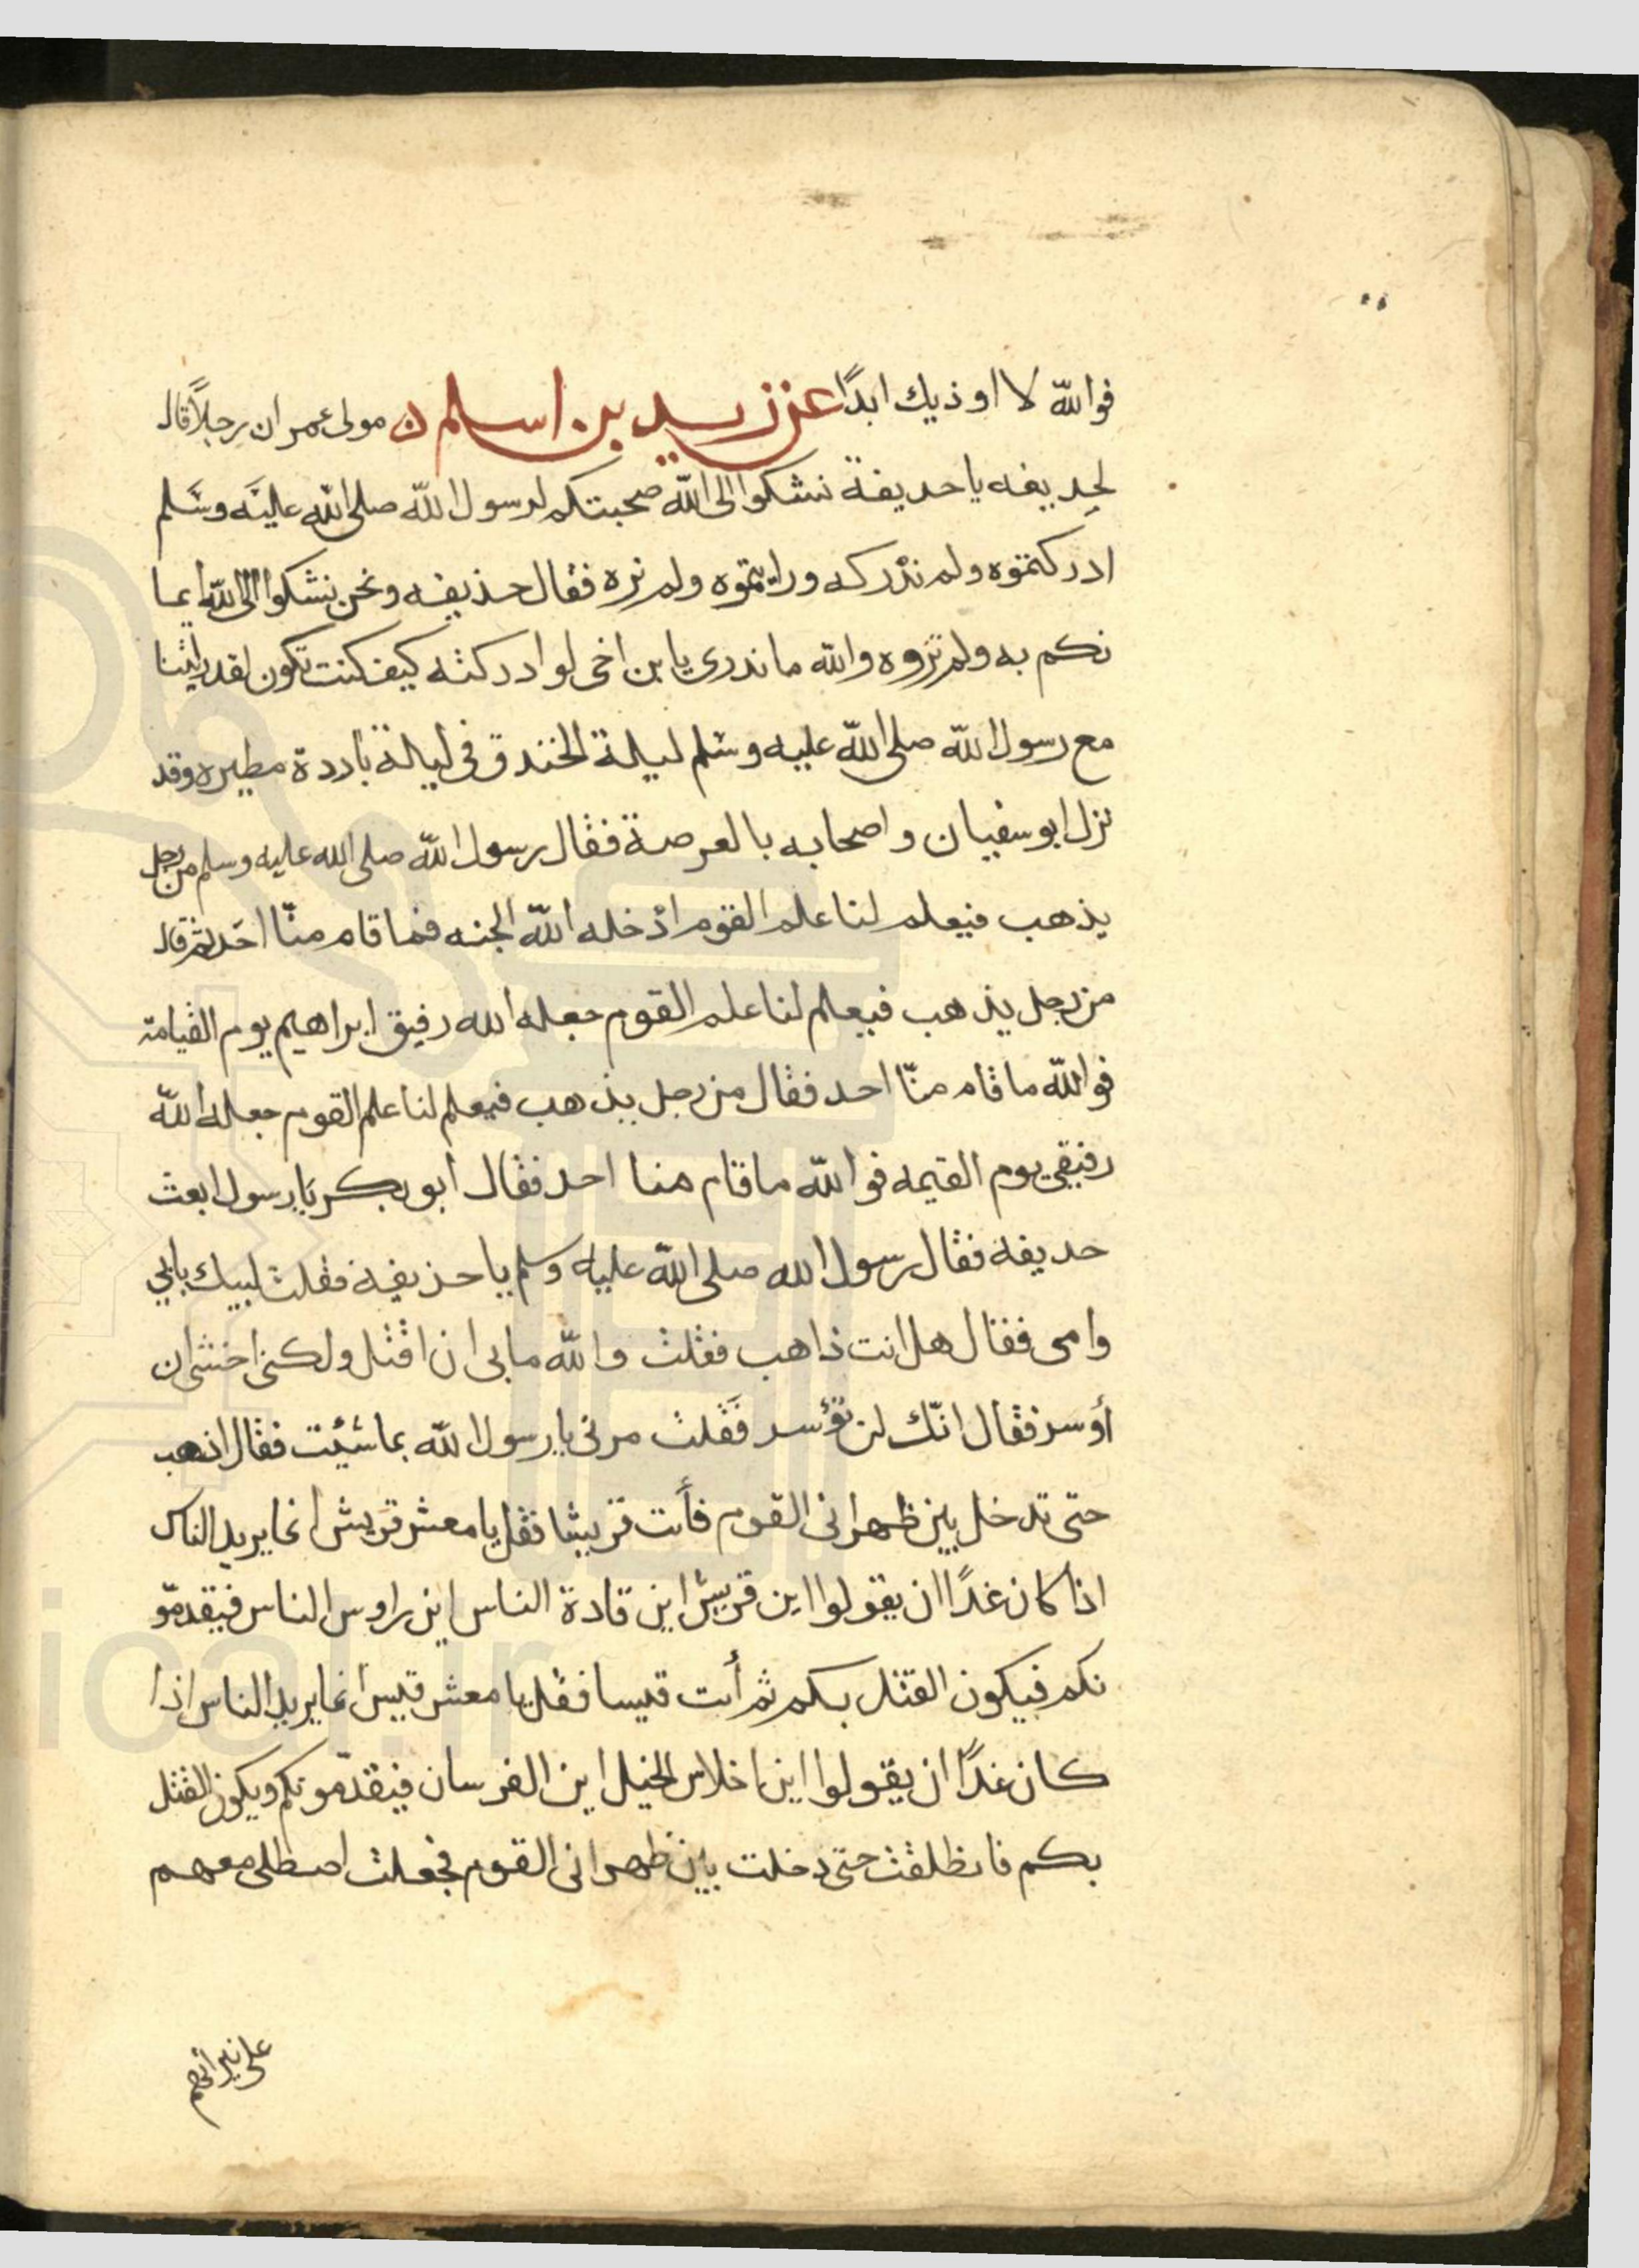 فوالله لا اوذيك ابدًا عن زيد بن اسلم ن مولى عمر ان رجلاً قال
لحديفه يا حديفة نشكوا الى الله صحبتكم لرسول الله صلى الله عليه وسلم
ادركتموه ولم ندركه ورايتموه ولم نره فقال حذيفه ونحن نشكوا الى الله ايما
نكم به ولم تروه والله ما ندرى يا بن اخى لو ادركته كيف كنت تكون لقد رايتنا
مع رسول الله صلى الله عليه وسلم ليلة الخندق فى ليلة باردة مطيره وقد
نزل ابو سفيان واصحابه بالعرصة فقال رسول الله صلى الله عليه وسلم من رجل
يذهب فيعلم لنا علم القوم ادخله الله الجنه فما قام منّا احد ثم قال
من رجل يذهب فيعلم لنا علم القوم جعله الله رفيق ابراهيم يوم القيامة
فوالله ما قام منّا احد فقال من رجل يذهب فيعلم لنا علم القوم جعله الله
رفيقى يوم القيمه فوالله ما قام منا احد فقال ابو بكر يا رسول ابعث
حديفه فقال رسول الله صلى الله عليه وسلم يا حذيفة فقلت لبيك بابي
وامى فقال هل انت ذاهب فقلت والله مابى ان اقتل ولكنى اخشى ان
أوسر فقال انّك لن تؤسر فقلت مرنى يا رسول الله بما شئت فقال اذهب
حتى تدخل بين ظهرانى القوم فأت قريشا فقل يا معشر قريش انما يريد الناس
اذا كان غدًا ان يقولوا اين قريش اين قادة الناس اين راوس الناس فيقدمّو
نكم فيكون القتل بكم ثم أت قيسا فقل يا معشر قيس انما يريد الناس اذا
كان غدًا ان يقولوا اين اخلاس الخيل اين الفرسان فيقدّمونكم ويكون القتل
بكم فانطلقت حتى دخلت بين ظهرانى القوم فجعلت اصطلى معهم
على نيرانهم